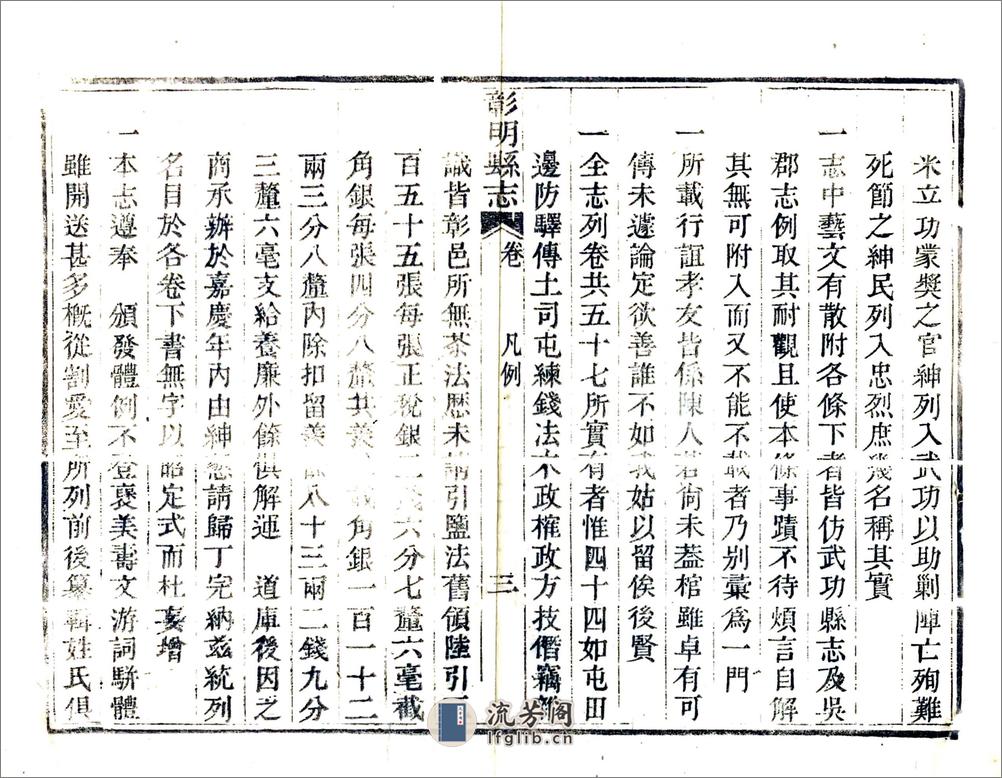 米立功蒙獎之官紳列入武功以助剿陣亡殉難
死節之紳民列入忠烈庶幾名稱其實
一志中藝文有散附各條下者皆仿武功縣志及吳
郡志例取其耐觀且使本條事蹟不待煩言自解
其無可附入而又不能不載者乃別彙為一門
一所載行誼孝友皆係陳人若尚未蓋棺雖卓有可
傳未遽論定欲善誰不如我姑以留俟後賢
一全志列卷共五十七所實有者惟四十四如屯田
邊防驛傳土司屯練錢法木政榷政方技僭竊
彰明縣志 卷 凡例 三
識皆彰邑所無茶法歷未請引鹽法舊領陸引
百五十五張每張正稅銀二錢六分七釐六毫截
角銀每張四分八釐共羨截角銀一百一十二
兩三分八釐內除扣留羨 八十三兩二錢九分
三釐六毫支給養廉外餘俱解運 道庫後因之
商承辦於嘉慶年內由紳 請歸丁完納茲統列
名目於各卷下書無字以昭定式而杜妄增
一本志遵奉 頒發體例不登褒美壽文游詞駢體
雖開送甚多概從割愛至所列前後纂輯姓氏俱
流芳閣
lfglib.cn